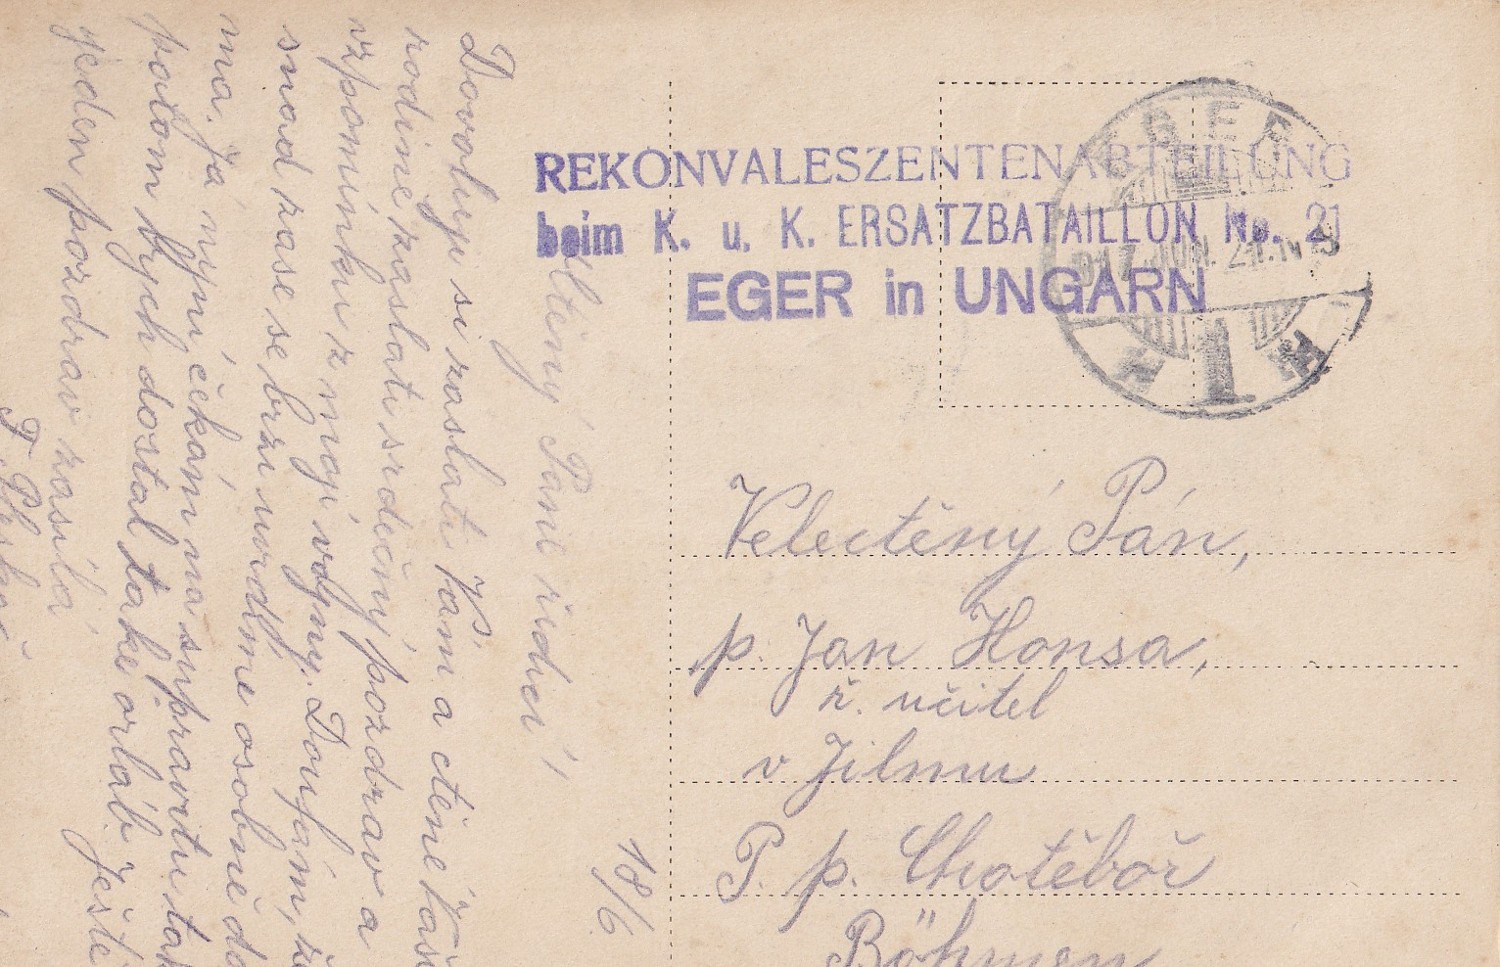 REKONVALESZENTENABTEILUNG
beim K. u. K. ERSATZBATAILLON No. 21
EGER in UNGARN
EGER
917 JUN. 21. N 3
1
18/6.
ctěný Pane řídící!
Dovoluji si zaslati Vám a ctěné Vaší
rodině zaslati srdečný pozdrav a
vzpomínku z mojí vojny. Doufám, že
snad zase se brzi uvidíme osobně do
ma. Já nyní čekám na superarbitu tak
potom bych dostal také orláb. Ještě
jeden pozdrav zasílá
F.
Velectěný Pán,
p. Jan Honsa,
ř. učitel
v Jilmu
P. p. Chotěboř
Böhmen